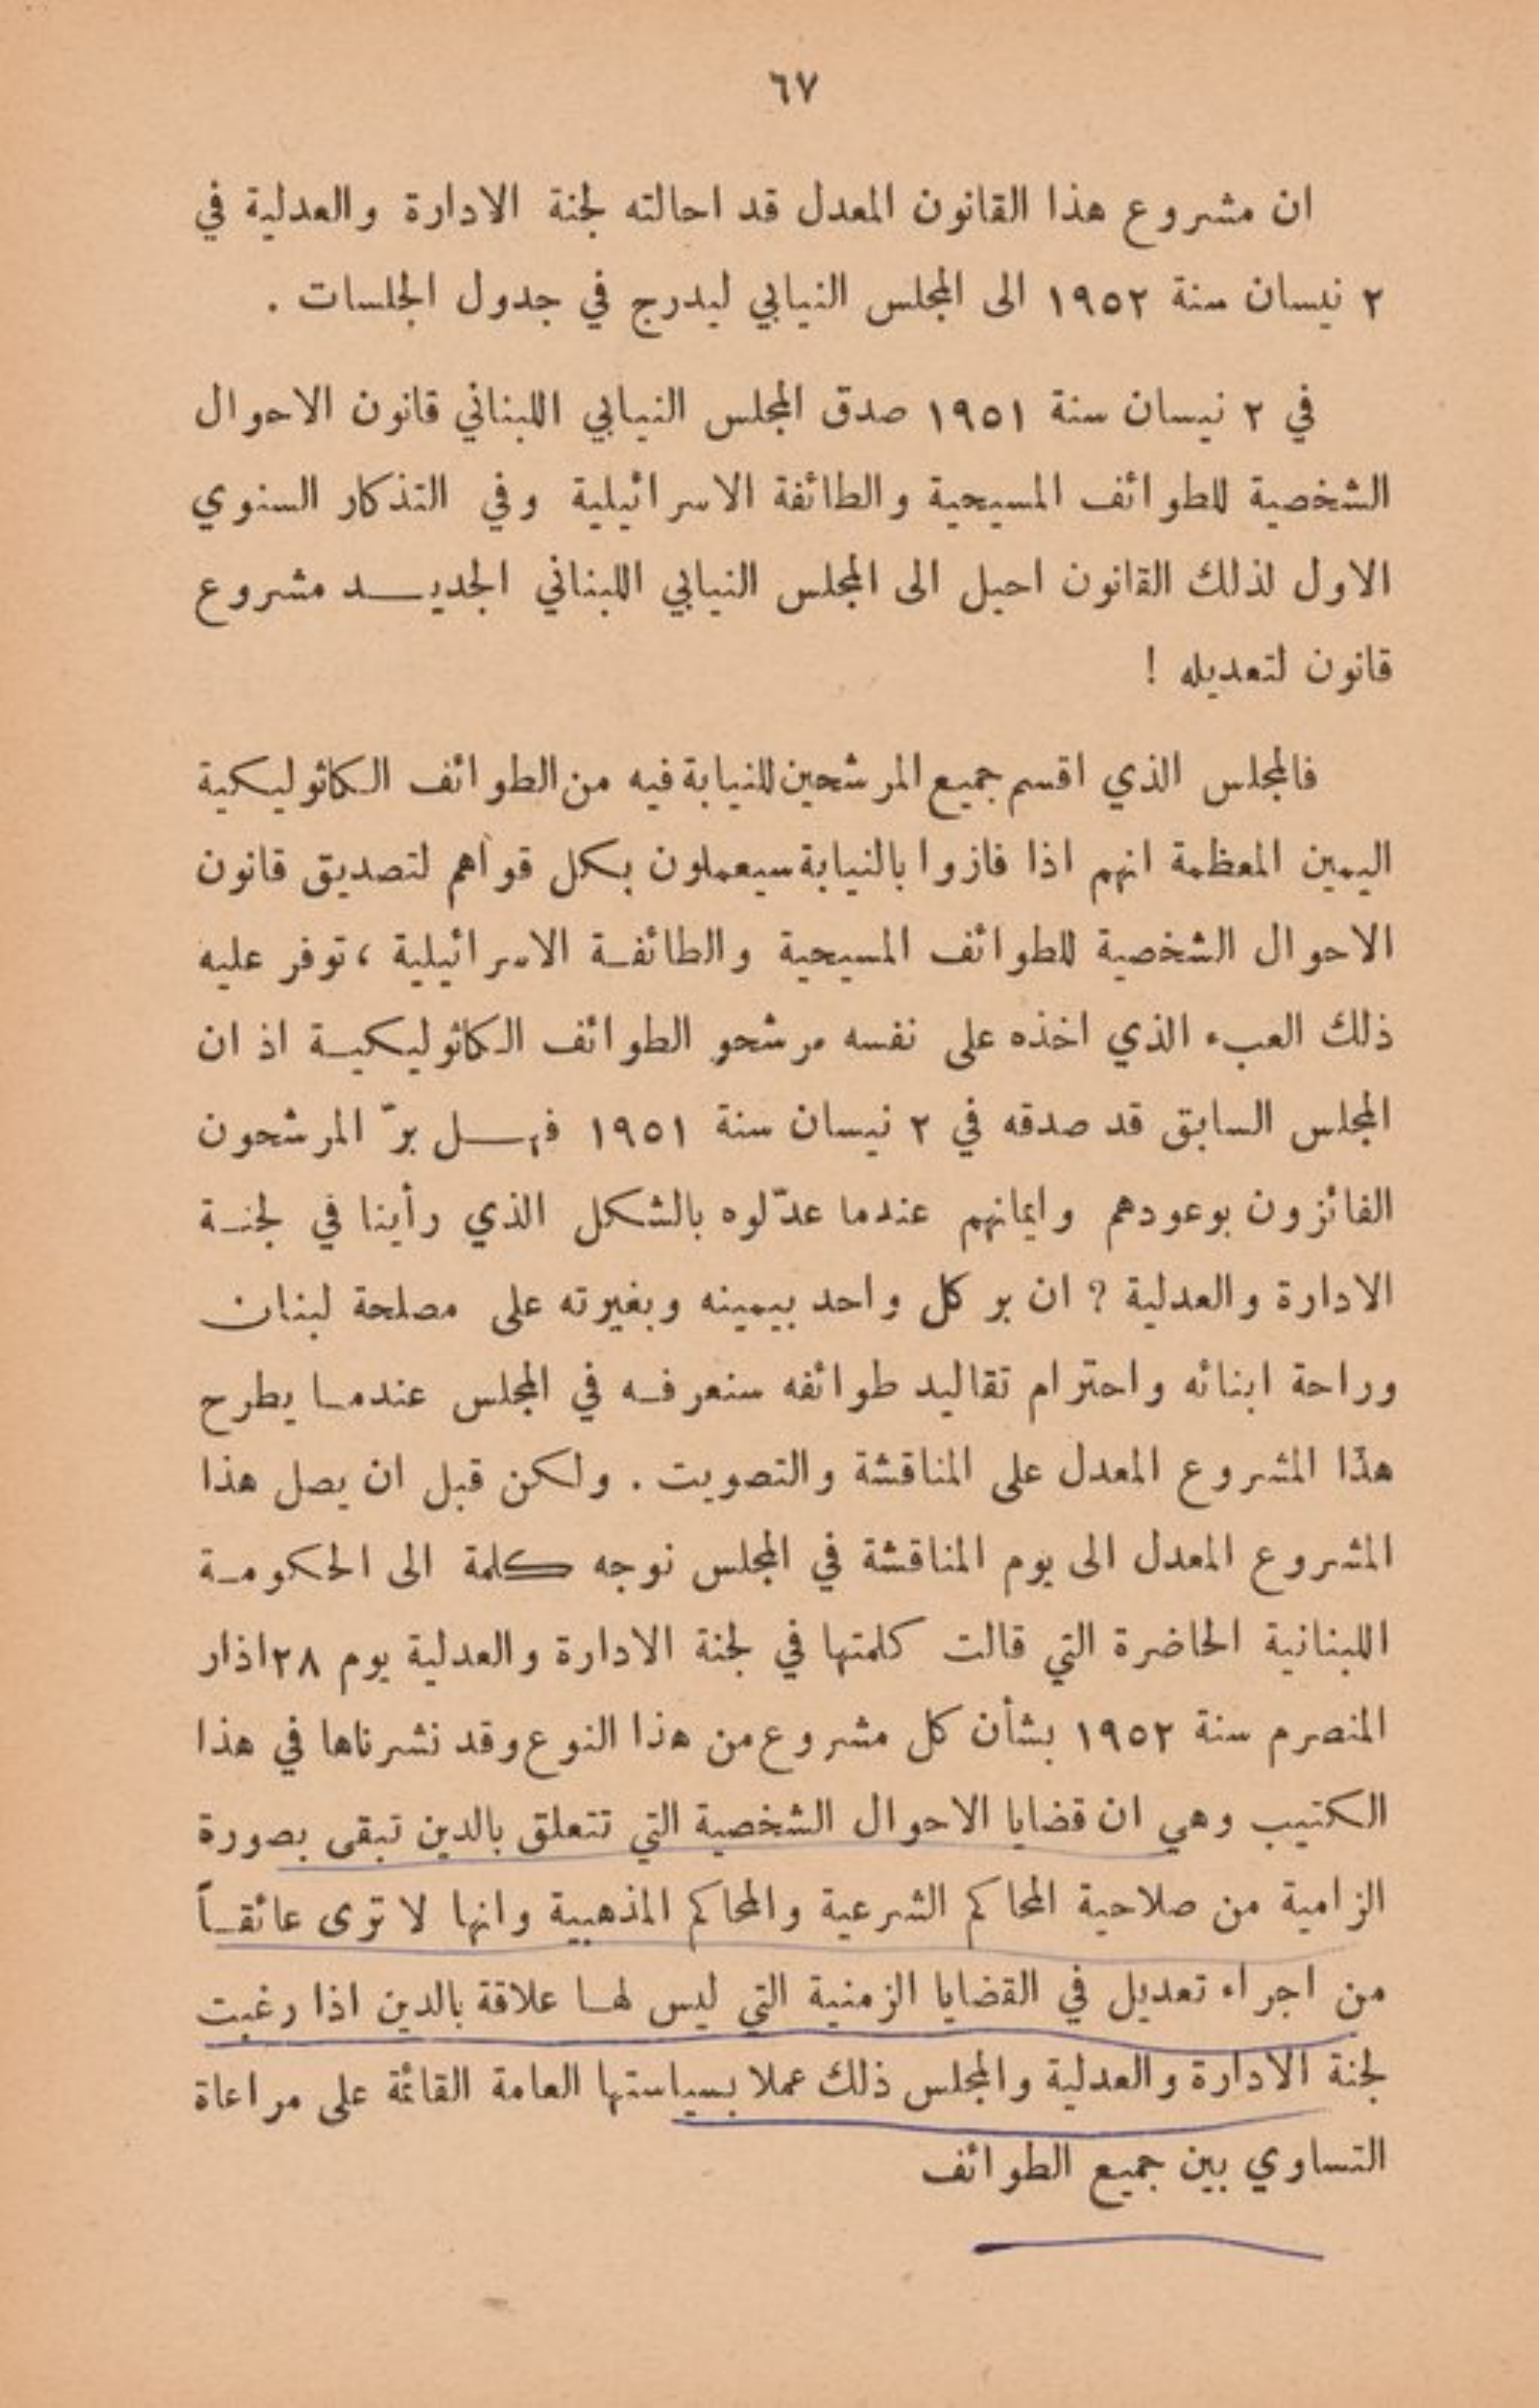 ٦٧
ان مشروع هذا القانون المعدل قد احالته لجنة الادارة والعدلية في
٢ نيسان سنة ١٩٥٢ الى المجلس النيابي ليدرج في جدول الجلسات .
في ٢ نيسان سنة ١٩٥١ صدق المجلس النيابي اللبناني قانون الاحوال
الشخصية للطوائف المسيحية والطائفة الاسرائيلية وفي التذكار السنوي
الاول لذلك القانون احيل الى المجلس النيابي اللبناني الجديـــد مشروع
قانون لتعديله !
فالمجلس الذي اقسم جميع المرشحين للنيابة فيه من الطوائف الكاثوليكية
اليمين المعظمة انهم اذا فازوا بالنيابة سيعملون بكل قواهم لتصديق قانون
الاحوال الشخصية للطوائف المسيحية والطائفـة الاسرائيلية ، توفر عليه
ذلك العبء الذي اخذه على نفسه مرشحو الطوائف الكاثوليكيـة اذ ان
المجلس السابق قد صدقه في ٢ نيسان سنة ١٩٥١ فهـــل برّ المرشحون
الفائزون بوعودهم وايمانهم عندما عدّلوه بالشكل الذي رأينا في لجنـة
الادارة والعدلية ? ان بر كل واحد بيمينه وبغيرته على مصلحة لبنان
وراحة ابنائه واحترام تقاليد طوائفه سنعرفـه في المجلس عندمـا يطرح
هذا المشروع المعدل على المناقشة والتصويت . ولكن قبل ان يصل هذا
المشروع المعدل الى يوم المناقشة في المجلس نوجه كلمة الى الحكومـة
اللبنانية الحاضرة التي قالت كلمتها في لجنة الادارة والعدلية يوم ٢٨ اذار
المنصرم سنة ١٩٥٢ بشأن كل مشروع من هذا النوع وقد نشرناها في هذا
الكتيب وهي ان قضايا الاحوال الشخصية التي تتعلق بالدين تبقى بصورة
الزامية من صلاحية المحاكم الشرعية والمحاكم المذهبية وانها لا ترى عائقـاً
من اجراء تعديل في القضايا الزمنية التي ليس لهـا علاقة بالدين اذا رغبت
لجنة الادارة والعدلية والمجلس ذلك عملا بسياستها العامة القائمة على مراعاة
التساوي بين جميع الطوائف